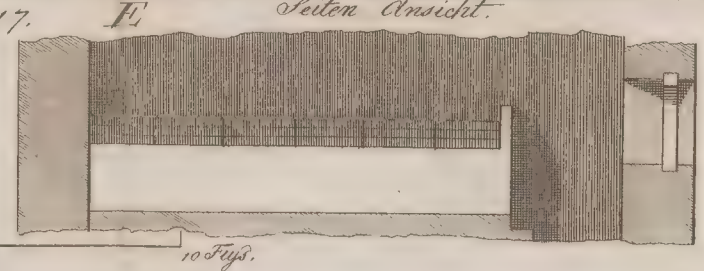 17. E Seiten Ansicht.
10 Fuss.